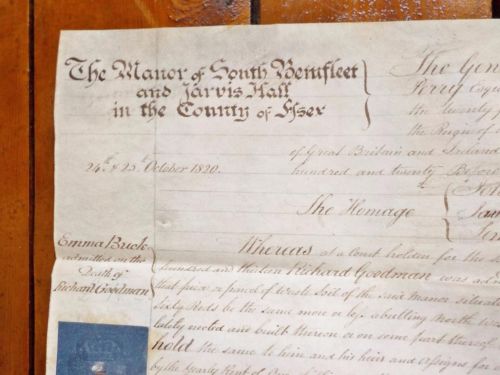 The Manor of South Bemfleet
and Jarvis Hall
in the County of Essex
The Gen
Perry Esqu
the twenty f
the Reign of
of Great Britain and Ireland
24th & 25th October 1820.
hundred and twenty Before
The Homage
Jam
Emma Buck
admitted on the
Death of
Richard Goodman
Whereas at a Court holden for the s
hundred and thirteen Richard Goodman was ad
that piece or parcel of Waste Soil of the said Manor situate
Sixty Rods be the same more or less abutting North
lately erected and built thereon or on some part thereof
hold the same to him and his heirs and assigns for
by the Yearly Rent of